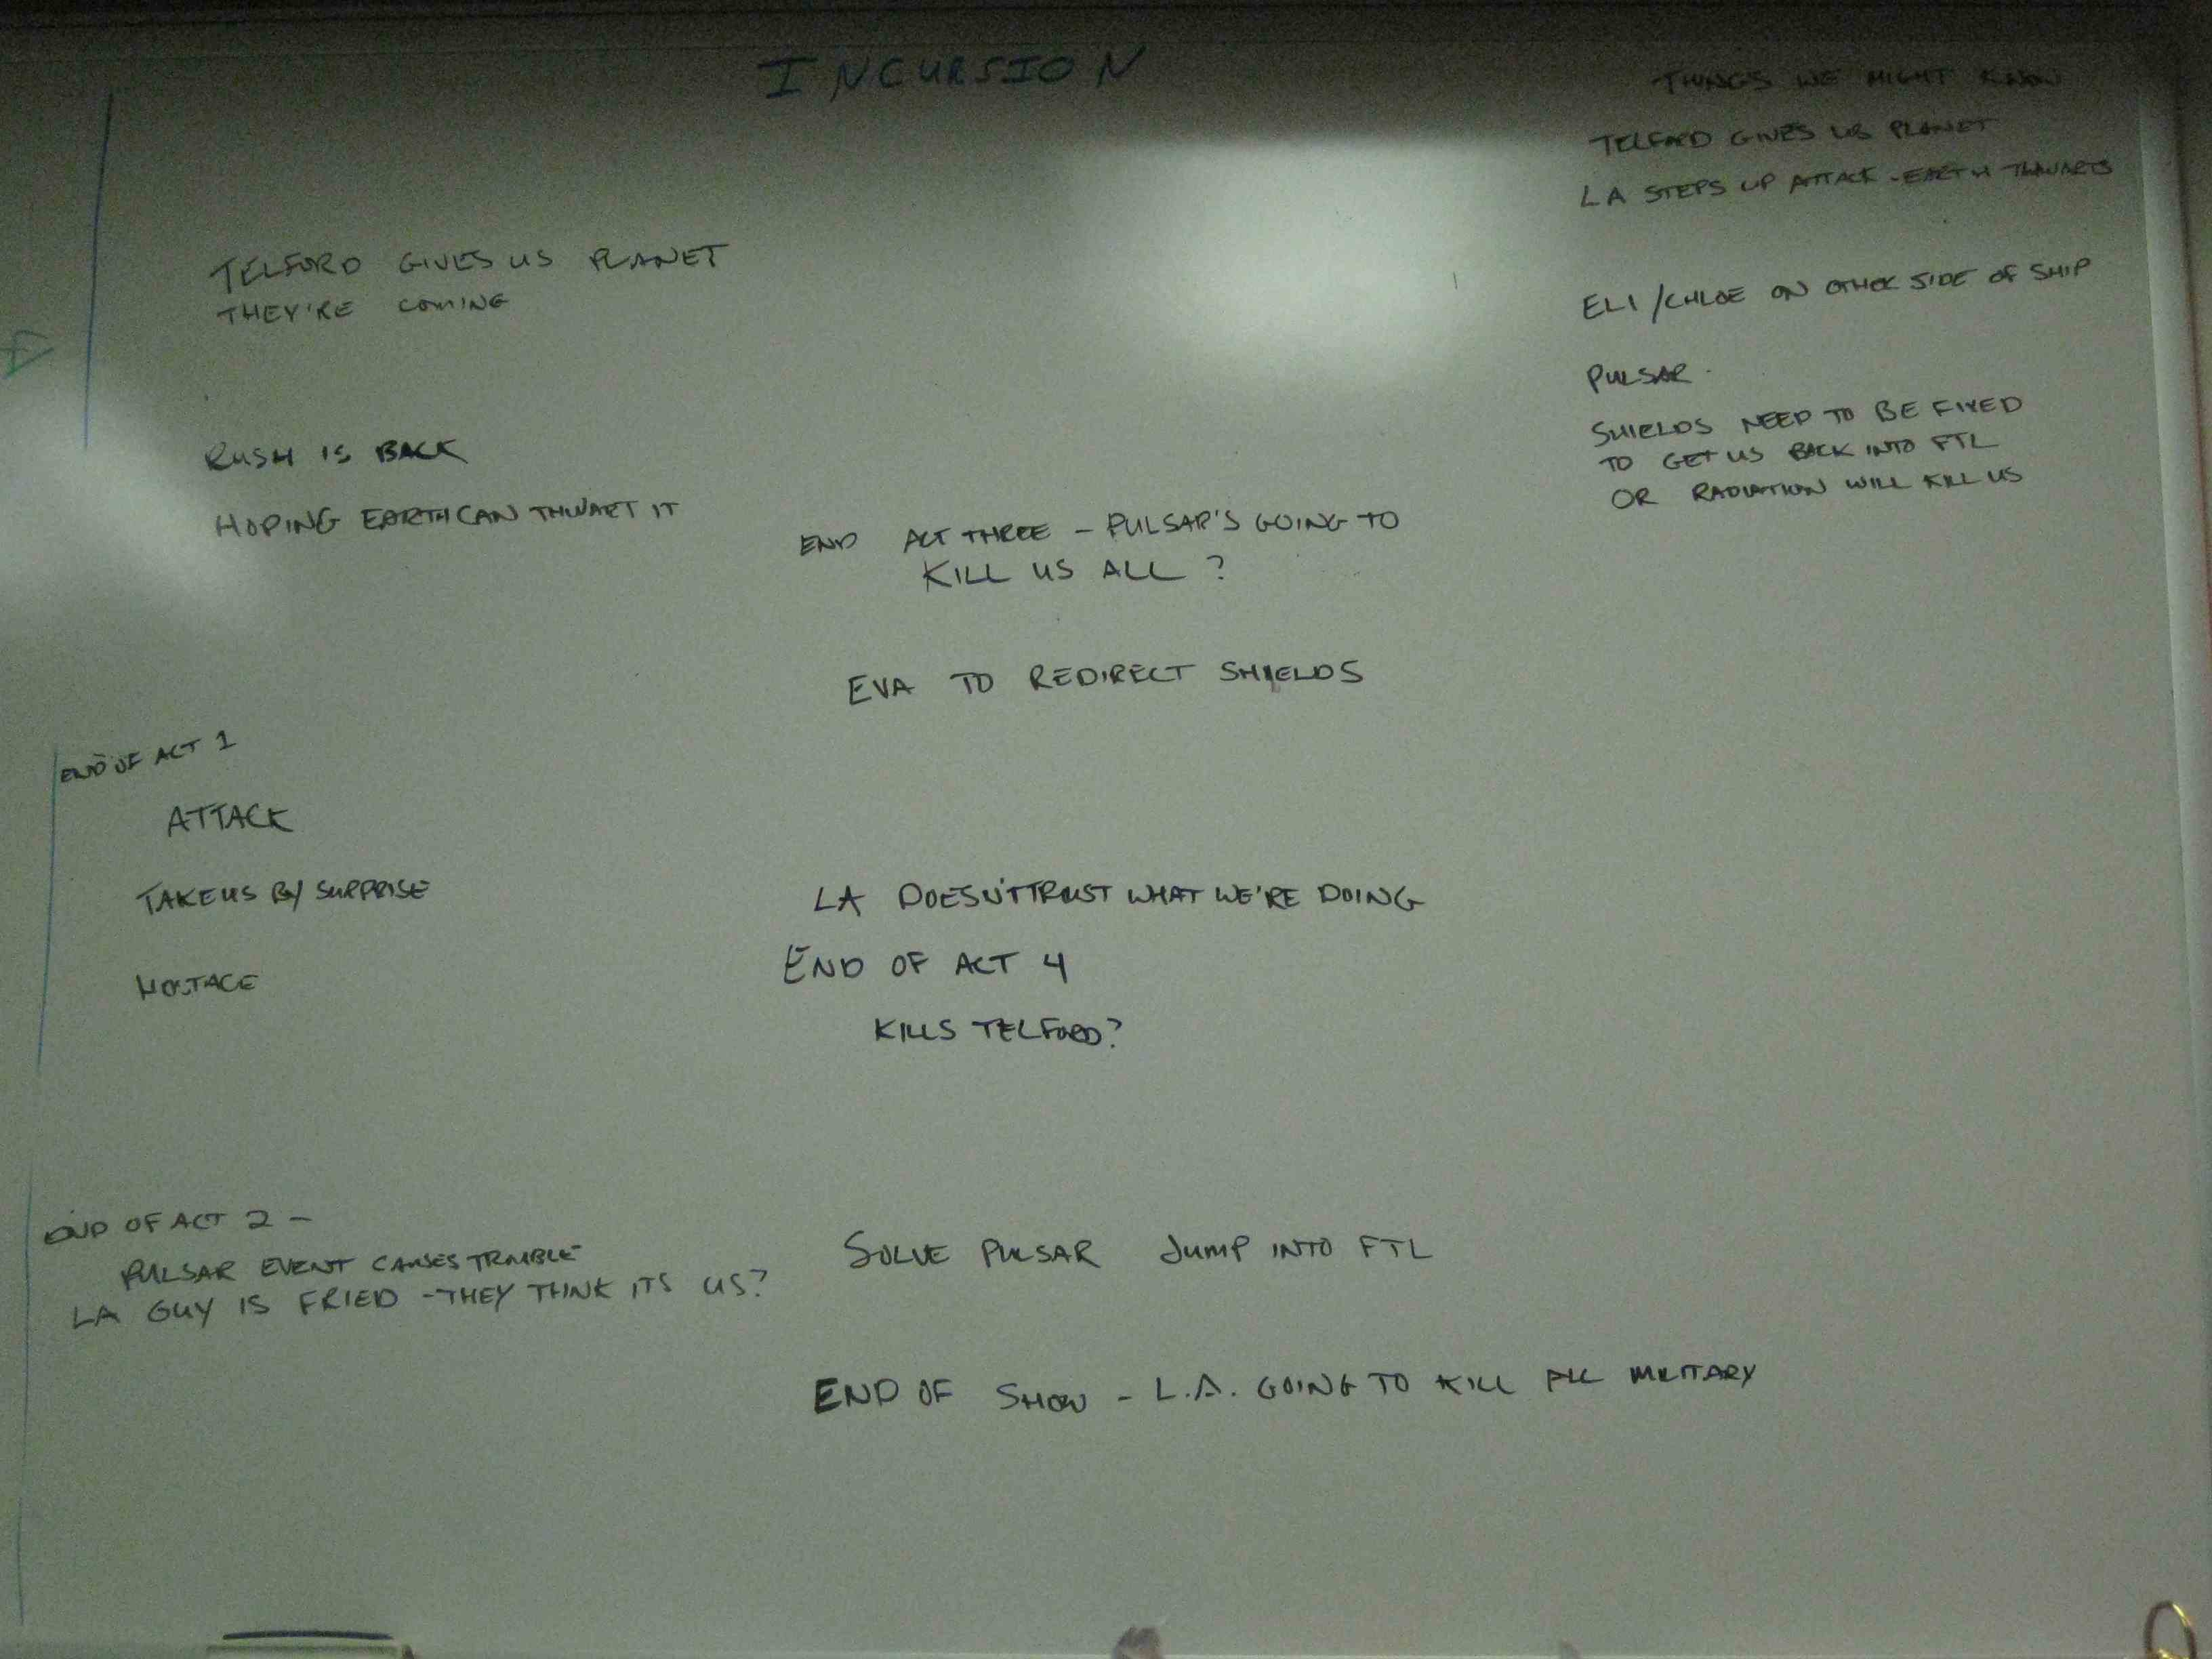 INCURSION
TELFORD GIVES US PLANET
THEY'RE COMING
RUSH IS BACK
HOPING EARTH CAN THWART IT
END OF ACT 1
ATTACK
TAKE US BY SURPRISE
HOSTAGE
END OF ACT 2 -
PULSAR EVENT CAUSES TROUBLE
LA GUY IS FRIED - THEY THINK ITS US?
END ACT THREE - PULSAR'S GOING TO
KILL US ALL ?
EVA TO REDIRECT SHIELDS
LA DOESN'T TRUST WHAT WE'RE DOING
END OF ACT 4
KILLS TELFORD?
SOLVE PULSAR JUMP INTO FTL
END OF SHOW - L.A. GOING TO KILL ALL MILITARY
THINGS WE MIGHT KNOW
TELFORD GIVES US PLANET
LA STEPS UP ATTACK - EARTH THWARTS
ELI / CHLOE ON OTHER SIDE OF SHIP
PULSAR.
SHIELDS NEED TO BE FIXED
TO GET US BACK INTO FTL
OR RADIATION WILL KILL US